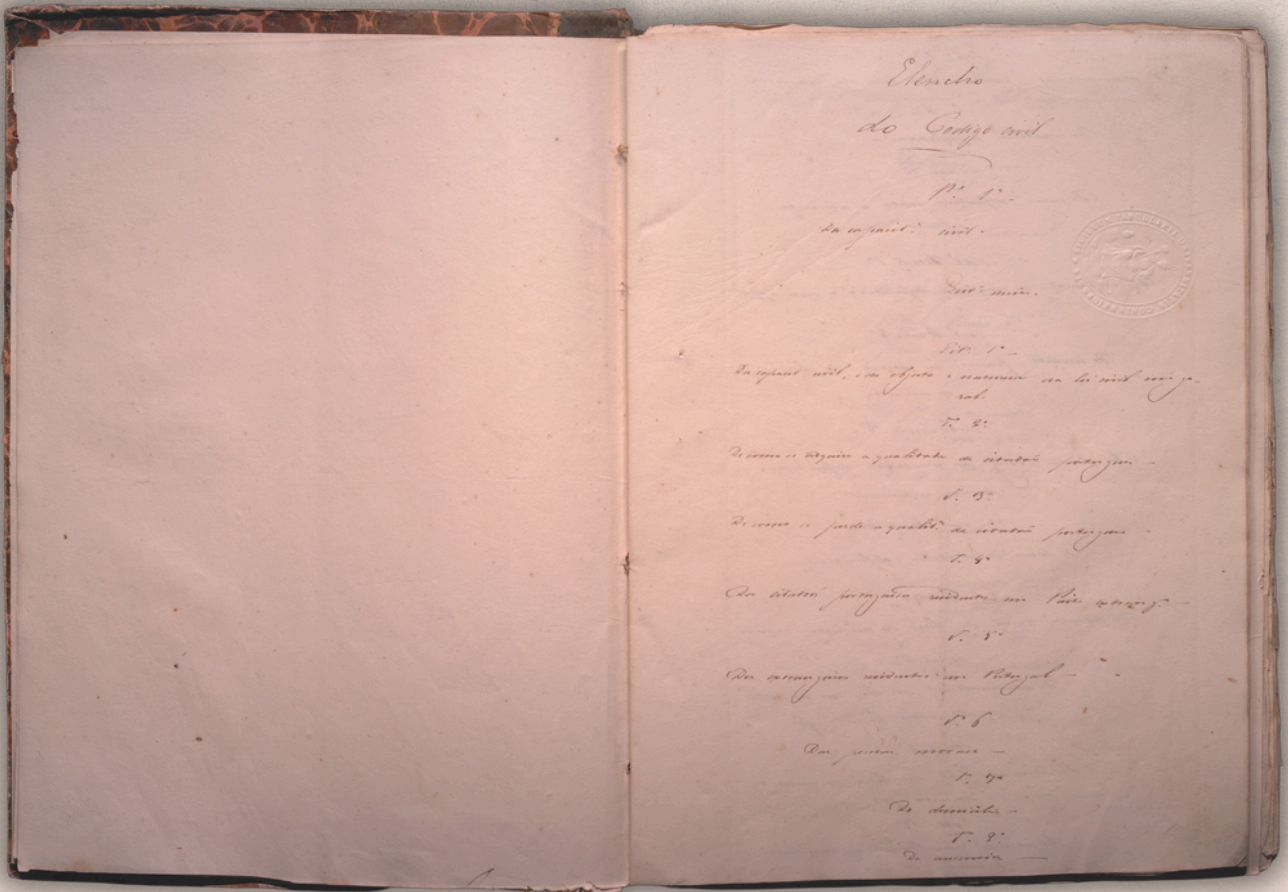 Elencho
do Codigo civil
Pᵉ 1ª
Da capacidᵉ civil.
Livº unico.
Titº 1º
Da capacidᵉ civil, e do objecto e natureza da lei civil em ge-
ral.
T. 2º
De como se adquire a qualidade de cidadaõ portuguez
T. 3º
De como se perde a qualidᵉ de cidadaõ portuguez
T. 4º
Dos cidadãos portuguezes residentes em Paiz estrangº
T. 5º
Dos estrangeiros residentes em Portugal
T. 6
Das pessoas moraes
T. 7º
Do domicilio
T. 8º
Da ausencia